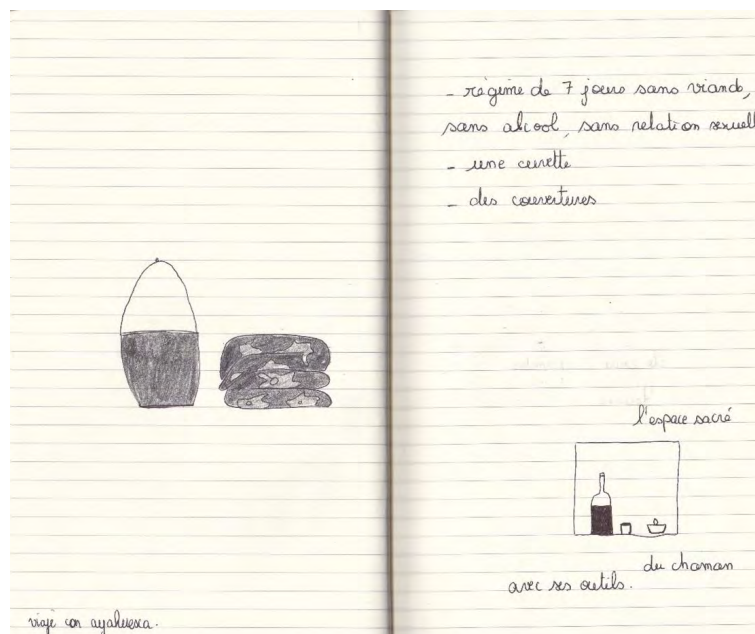 viaje con ayahuexa.
- régime de 7 jours sans viande,
sans alcool, sans relation sexuell
- une cuvette
- des couvertures
l'espace sacré
du chaman
avec ses outils.